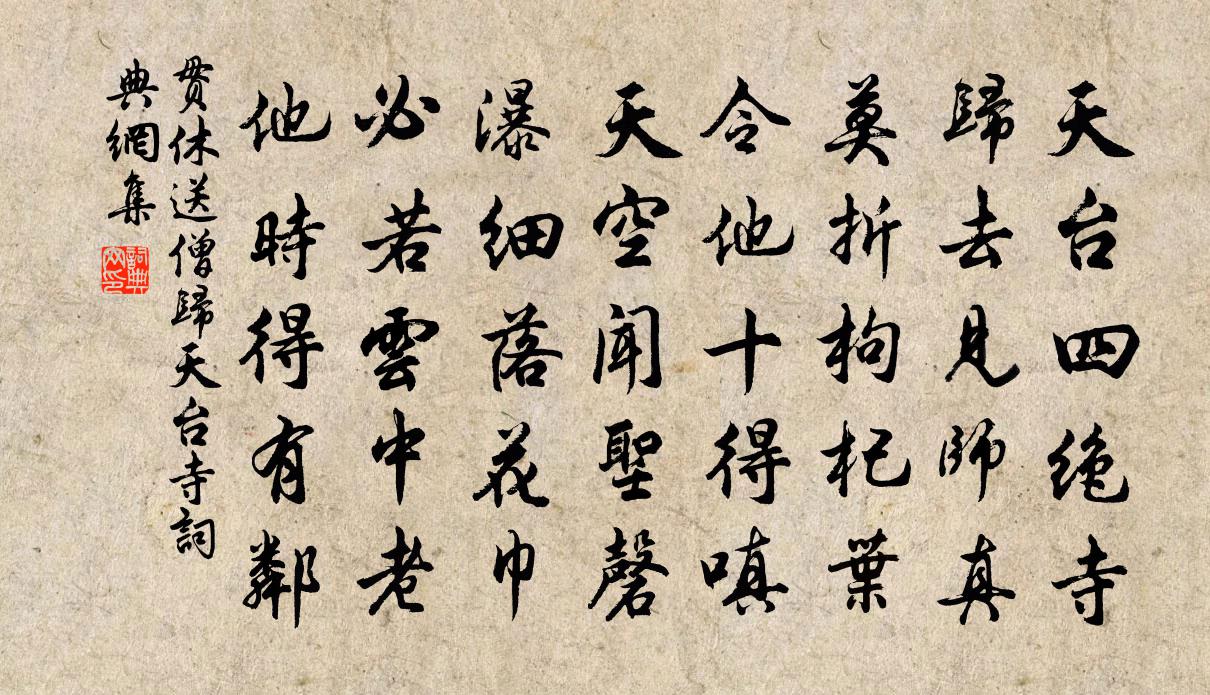 天台四绝寺
歸去見師真
莫折枸杞葉
令他十得嗔
天空聞聖磬
瀑細落花巾
必若雲中老
他時得有鄰
貫休送僧歸天台寺詞
典網集
詞典
网印